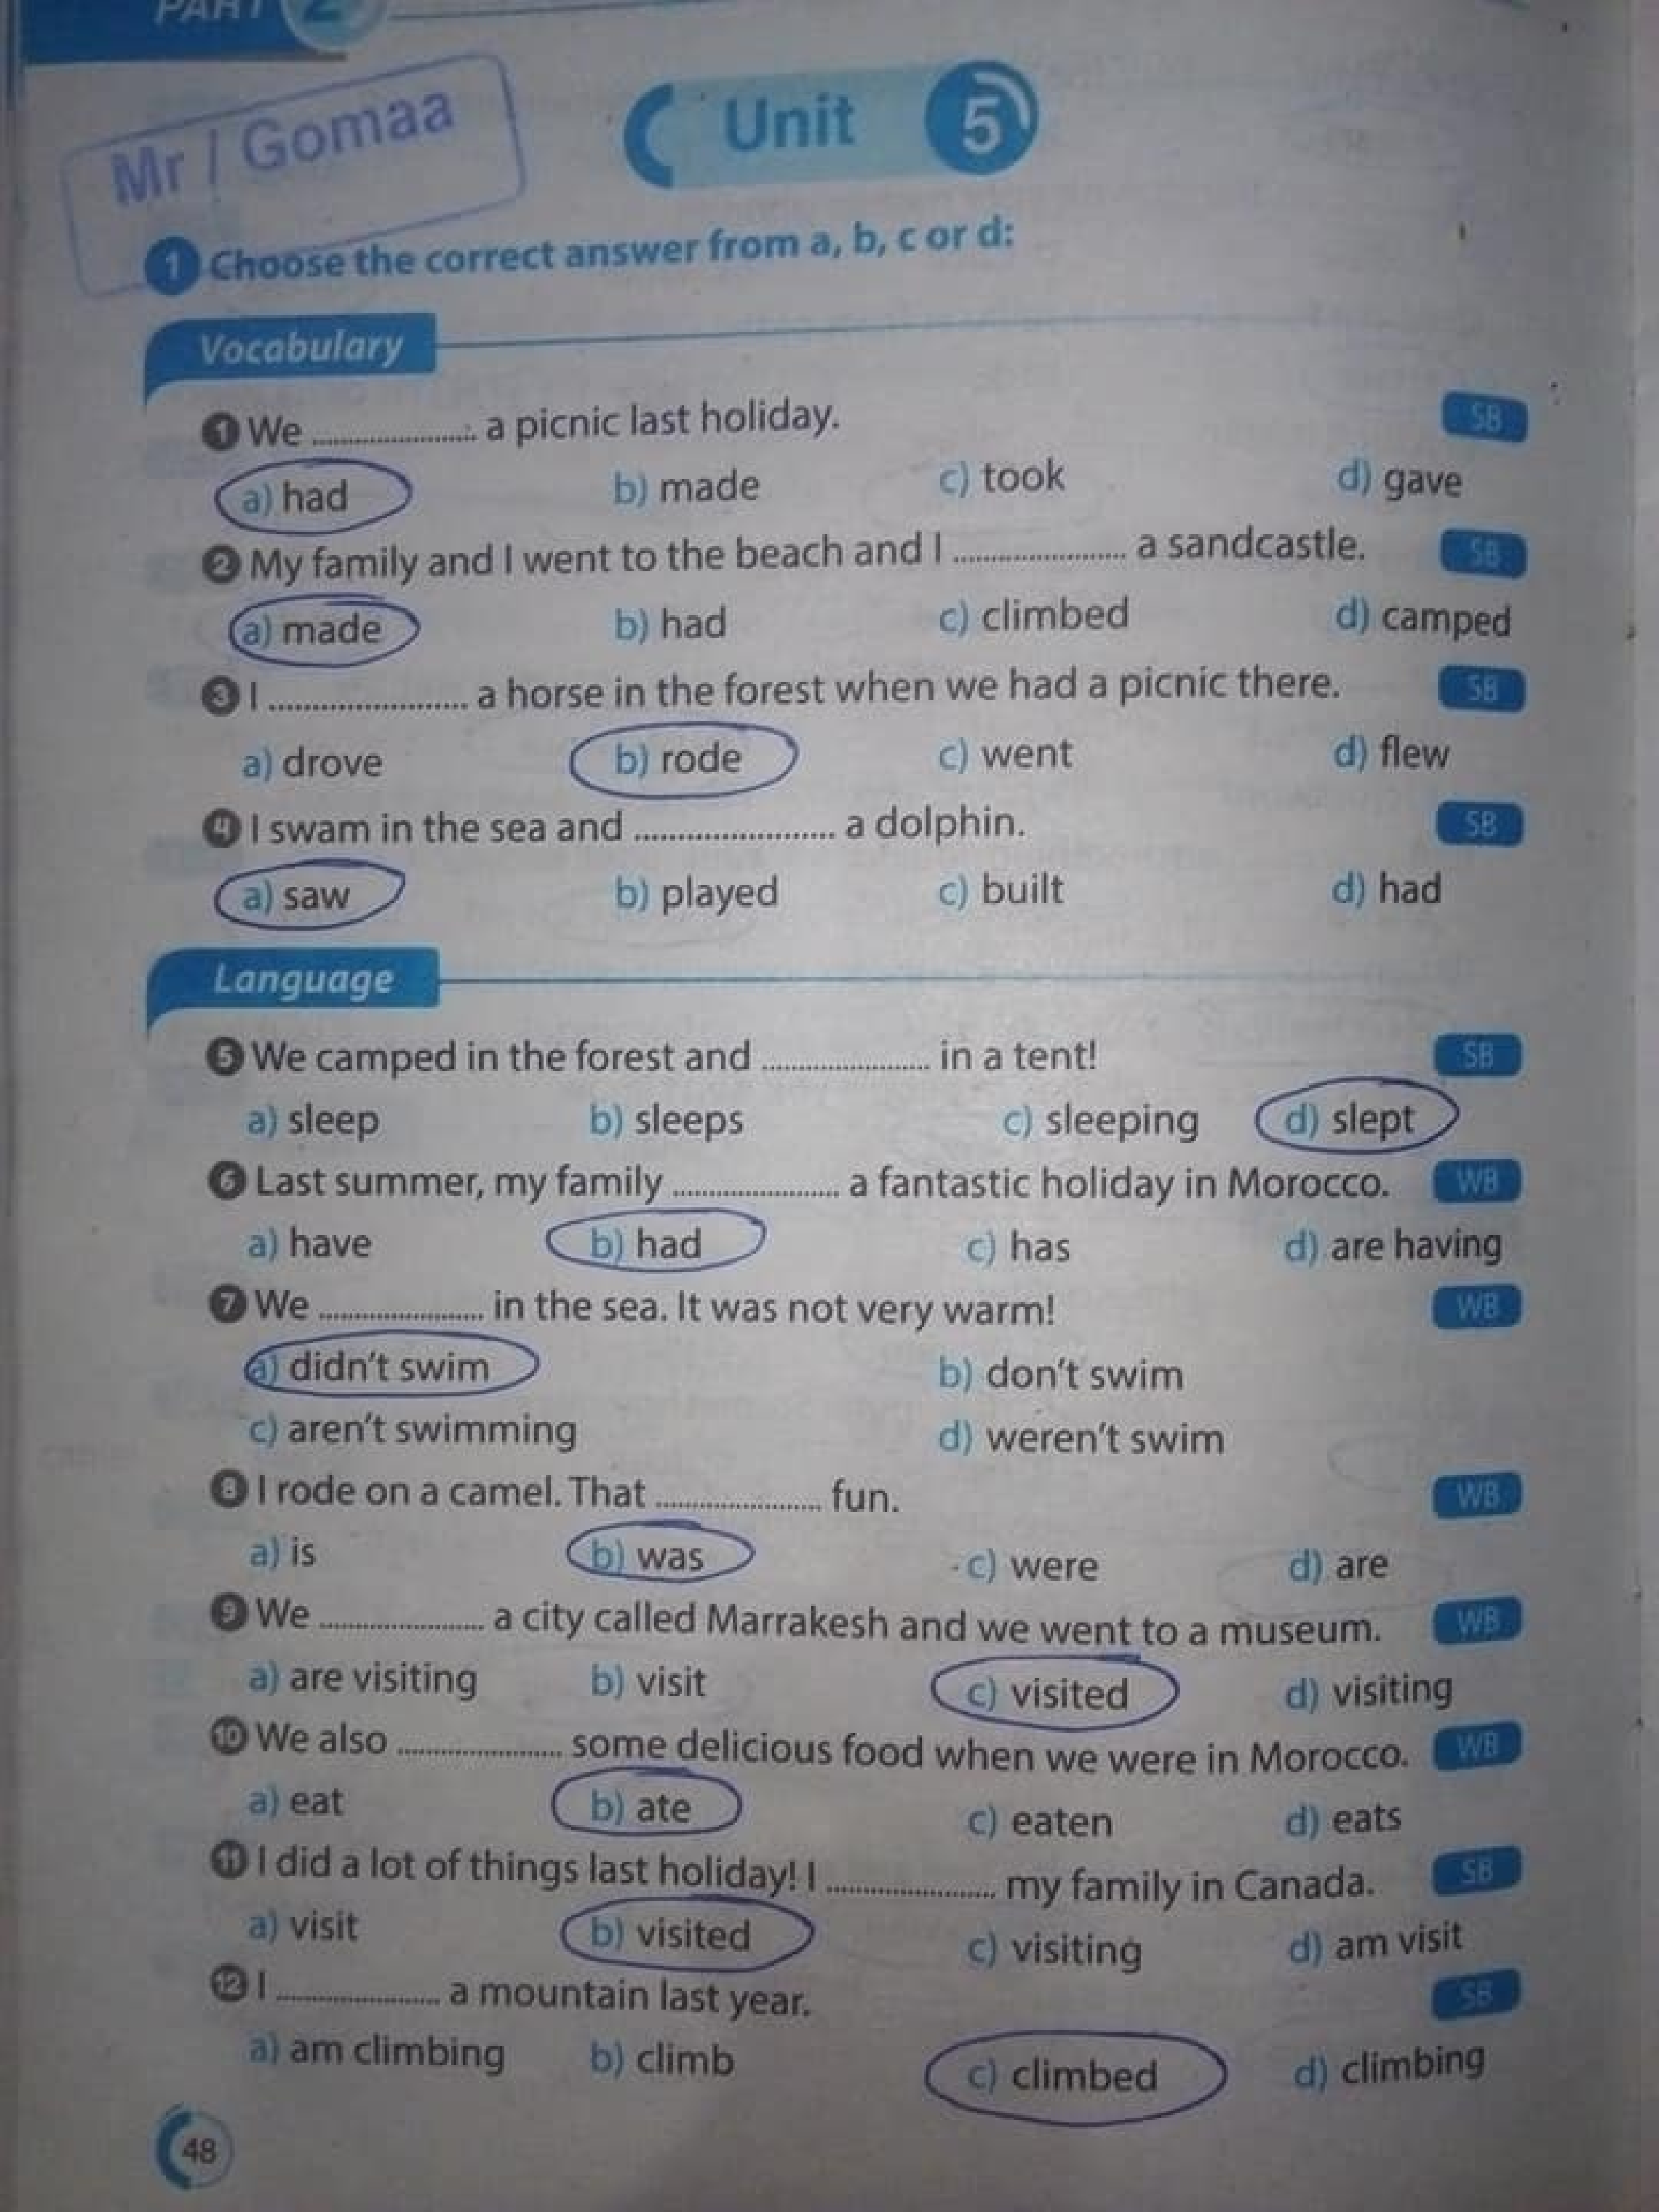 PART 2
Mr / Gomaa
Unit 5
1 Choose the correct answer from a, b, c or d:
Vocabulary
1 We ........................ a picnic last holiday. SB
a) had b) made c) took d) gave
2 My family and I went to the beach and I ........................ a sandcastle. SB
a) made b) had c) climbed d) camped
3 I ........................ a horse in the forest when we had a picnic there. SB
a) drove b) rode c) went d) flew
4 I swam in the sea and ........................ a dolphin. SB
a) saw b) played c) built d) had
Language
5 We camped in the forest and ........................ in a tent! SB
a) sleep b) sleeps c) sleeping d) slept
6 Last summer, my family ........................ a fantastic holiday in Morocco. WB
a) have b) had c) has d) are having
7 We ........................ in the sea. It was not very warm! WB
a) didn't swim b) don't swim
c) aren't swimming d) weren't swim
8 I rode on a camel. That ........................ fun. WB
a) is b) was c) were d) are
9 We ........................ a city called Marrakesh and we went to a museum. WB
a) are visiting b) visit c) visited d) visiting
10 We also ........................ some delicious food when we were in Morocco. WB
a) eat b) ate c) eaten d) eats
11 I did a lot of things last holiday! I ........................ my family in Canada. SB
a) visit b) visited c) visiting d) am visit
12 I ........................ a mountain last year. SB
a) am climbing b) climb c) climbed d) climbing
48